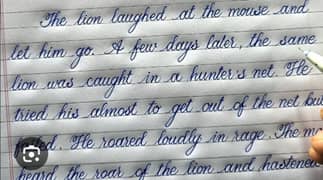 The lion laughed at the mouse and
let him go. A few days later, the same
lion was caught in a hunter's net. He
tried his almost to get out of the net bu
He roared loudly in rage. The m
heard the roar of the lion and hastene